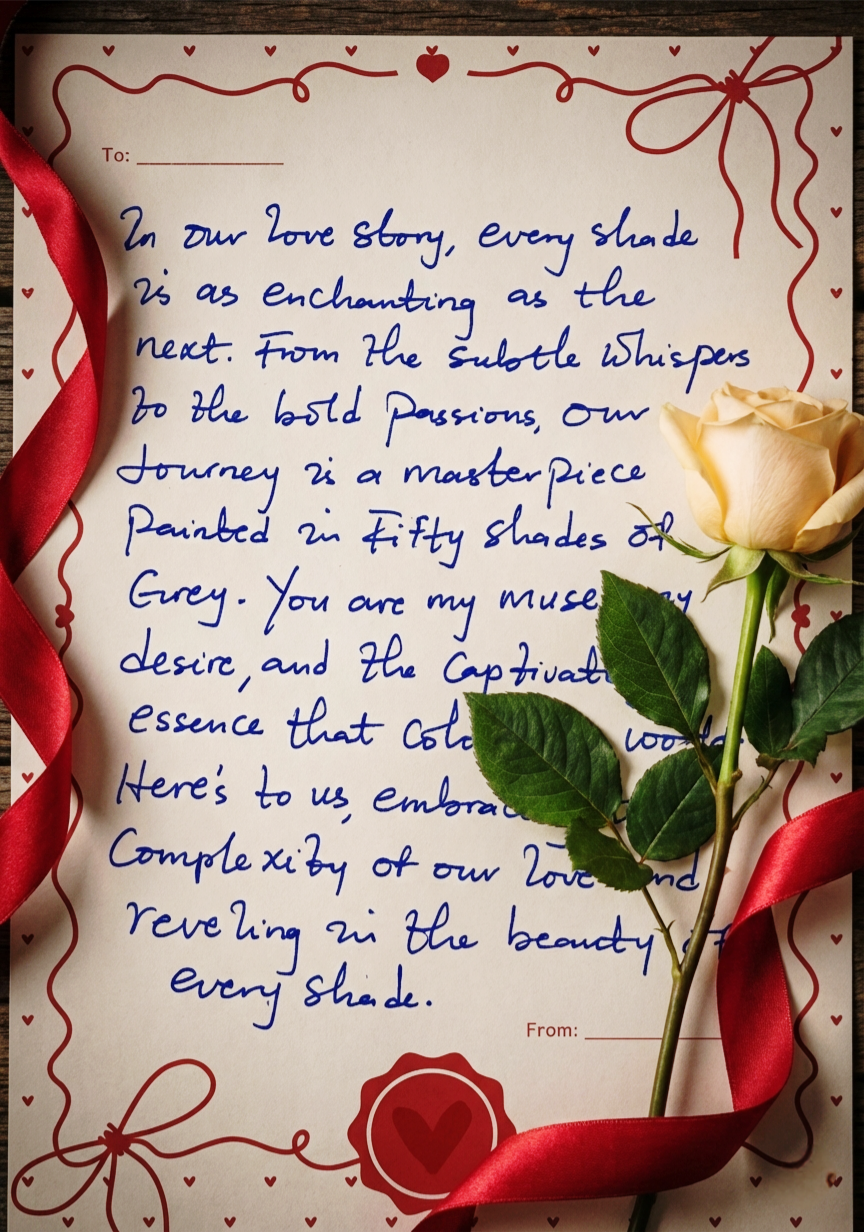 To:
In our love story, every shade
is as enchanting as the
next. From the subtle whispers
to the bold passions, our
Journey is a masterpiece
Painted in Fifty shades of
Grey. You are my muse
desire, and the
essence that
Here's to us,
Complexity of our love and
reveling in the beauty of
every shade.
From: